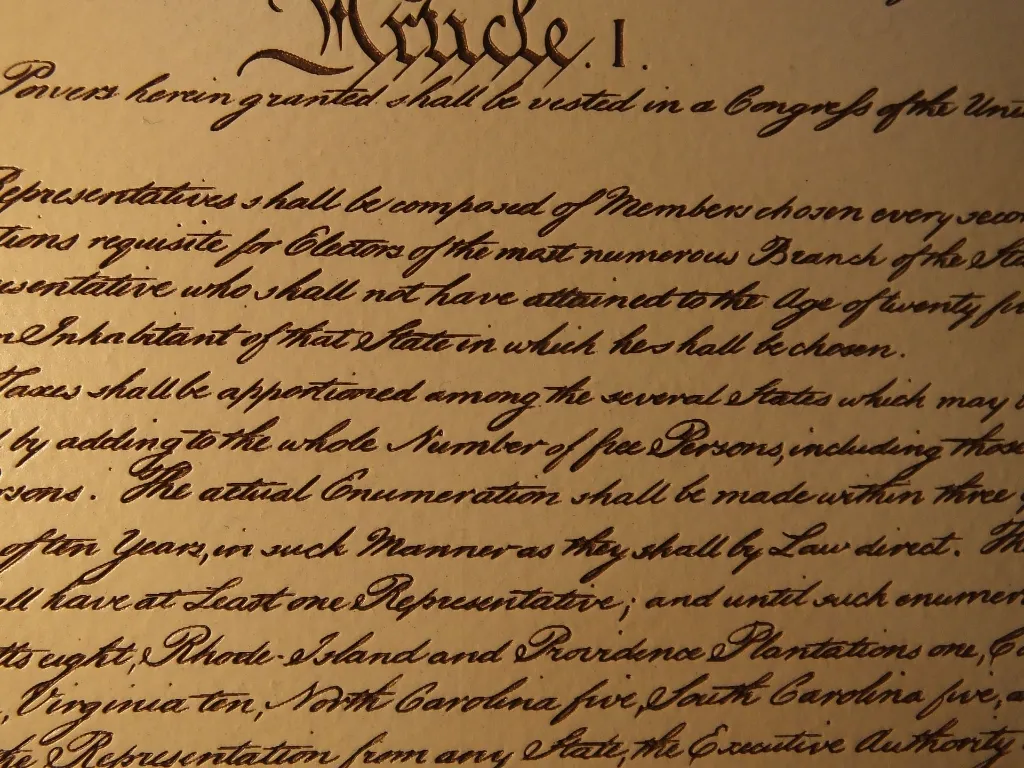 Article. I.
Powers herein granted shall be vested in a Congress of the Uni
Representatives shall be composed of Members chosen every secon
tions requisite for Electors of the most numerous Branch of the Sta
esentative who shall not have attained to the Age of twenty fi
n Inhabitant of that State in which he shall be chosen.
Taxes shall be apportioned among the several States which may b
by adding to the whole Number of free Persons, including those
rsons. The actual Enumeration shall be made within three y
of ten Years, in such Manner as they shall by Law direct. Th
all have at Least one Representative; and until such enumer
tts eight, Rhode-Island and Providence Plantations one, Co
, Virginia ten, North Carolina five, South Carolina five, a
the Representation from any State, the Executive Authority